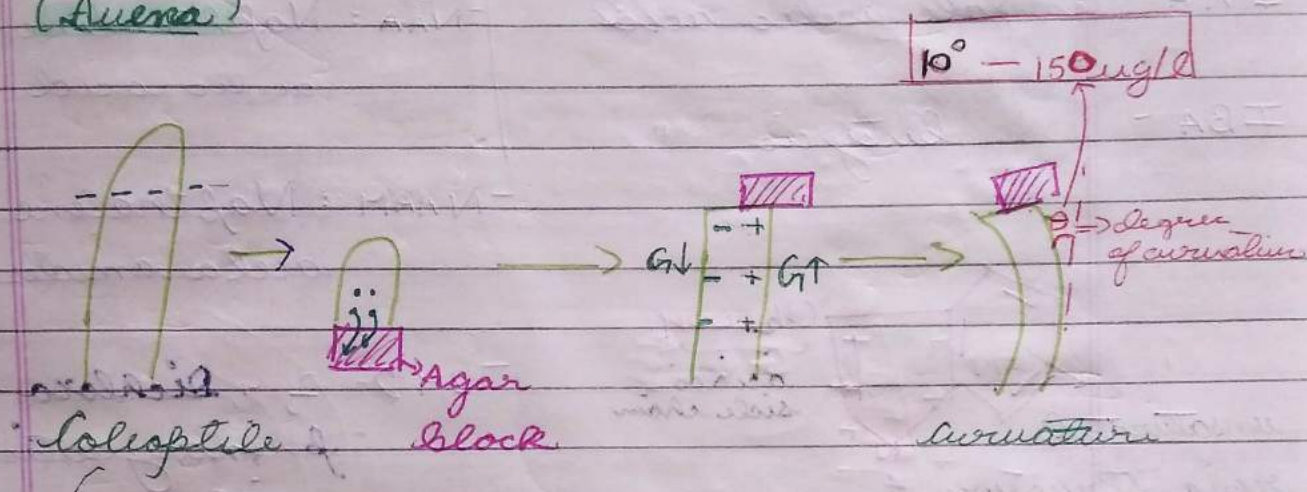 (Avena)
10° — 150 ug/l
G↓
- +
- +
- +
G↑
θ → degree
of curvature
→ Agar
block
Coleoptile
curvature